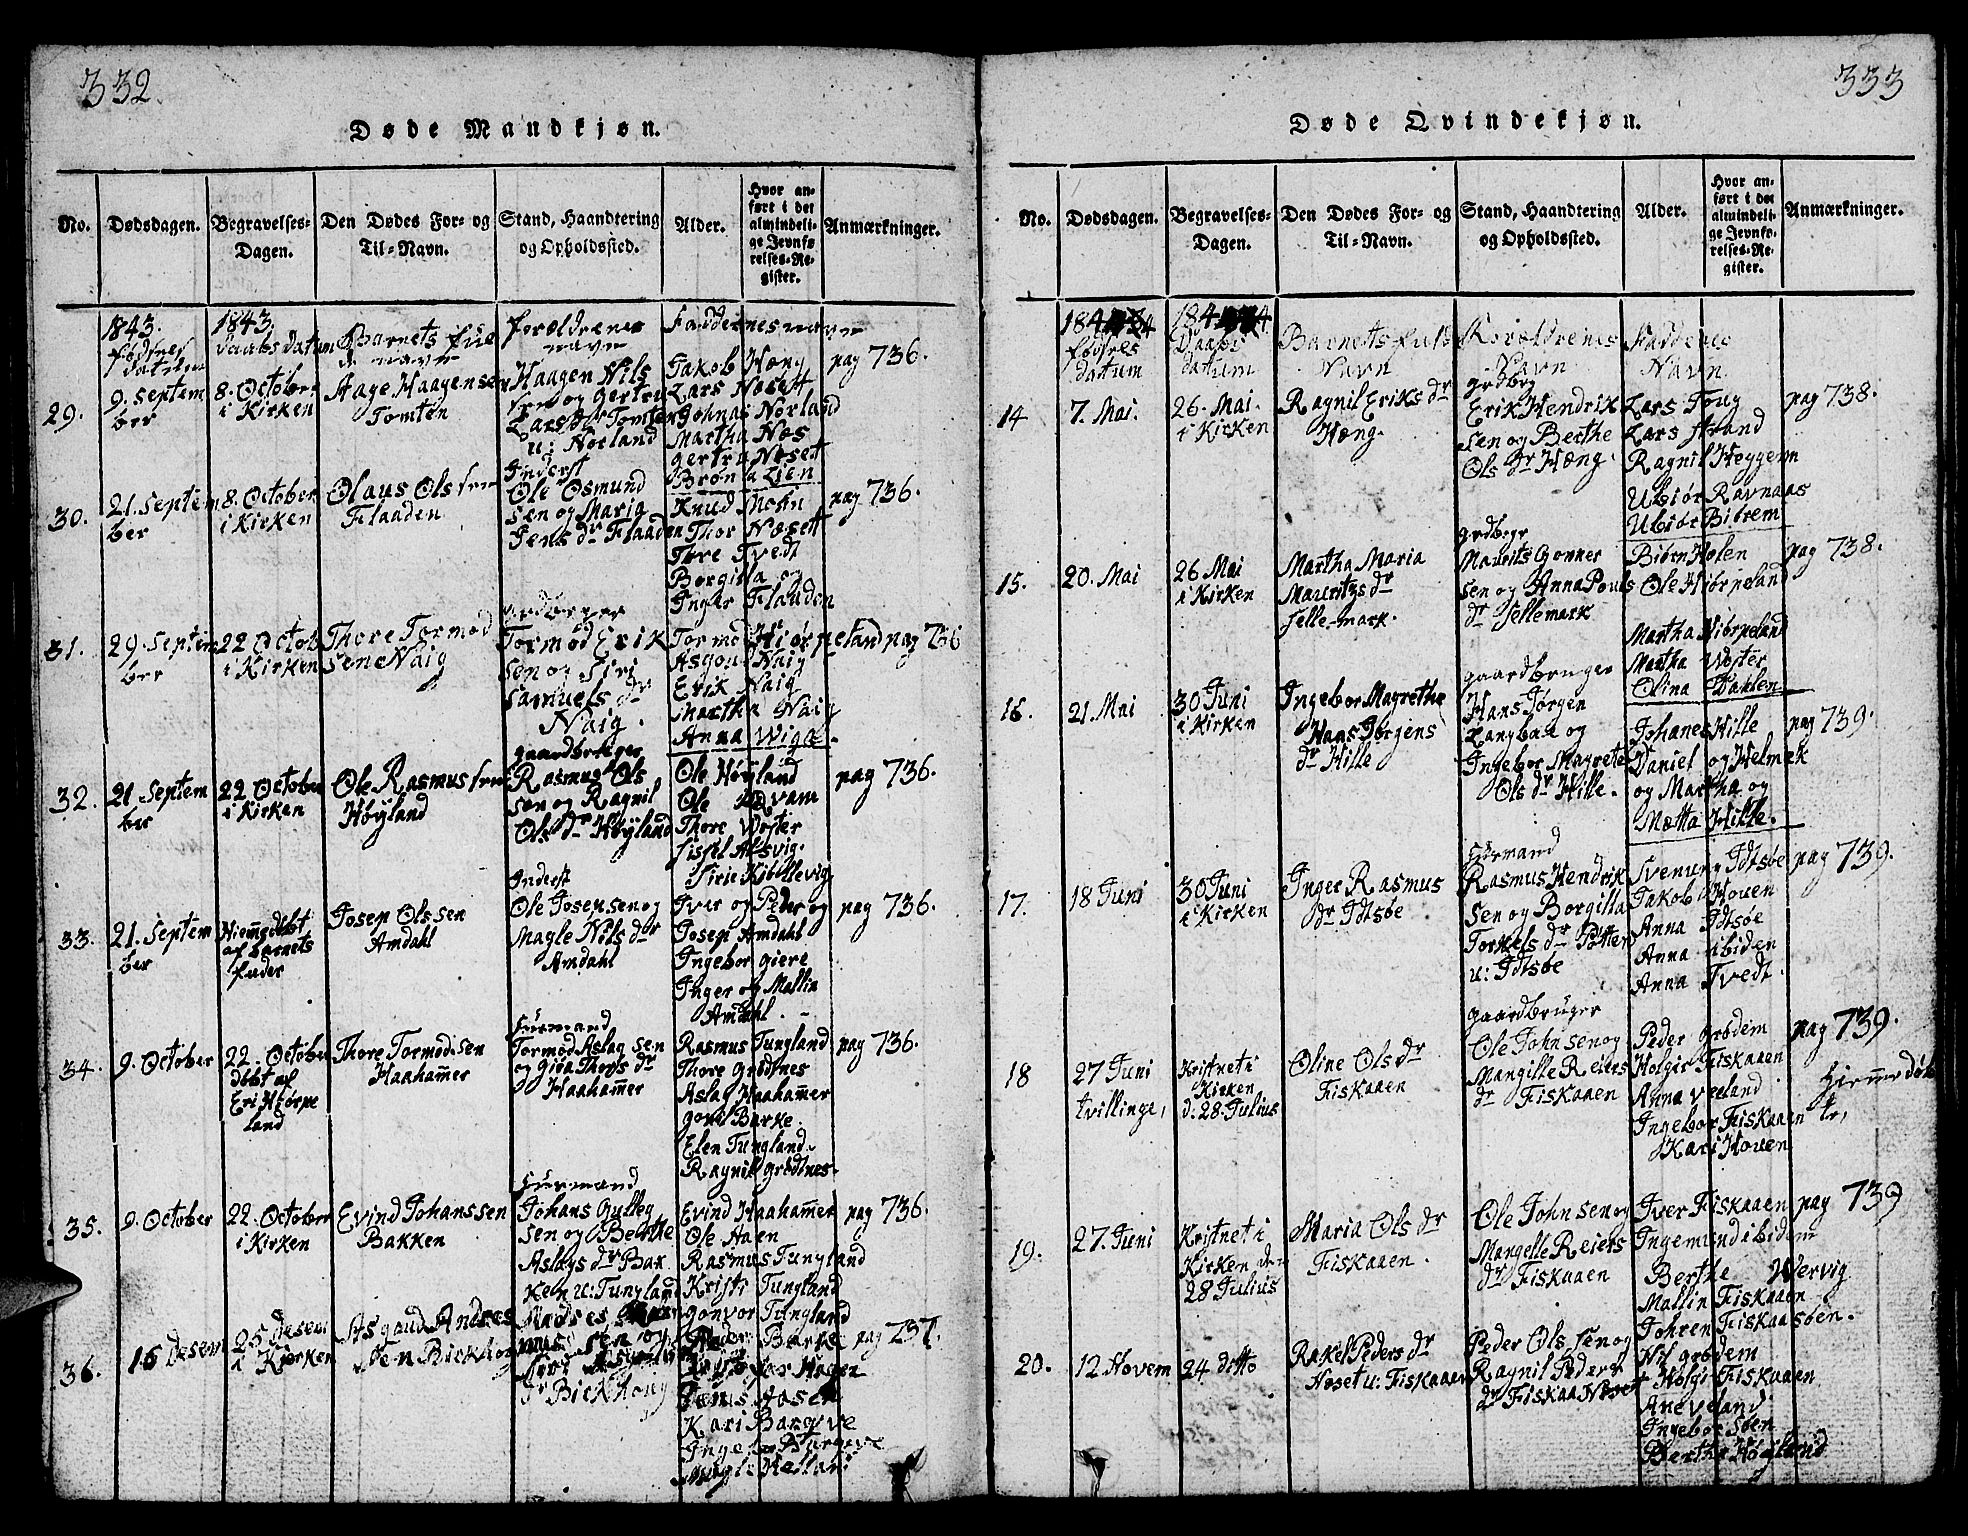 332
Døde Mandkjøn.
No.
Dødsdagen.
Begravelses-
Dagen.
Den Dødes For- og
Til-Navn.
Stand, Haandtering
og Opholdssted.
Alder.
Hvor an-
ført i det
almindeli-
ge Jevnfø
relses-Re-
gister.
Anmærkninger.
1843.
fødsels
datum
1843.
Daabsdatum
Barnets ful
de navn
forældrenes
navn
Faddernes navn
29.
9. Septem
ber
8. October
i Kirken
Aage Haagensen
Tomten
Haagen Nils
sen og Gertru
Lars dr Tomten
u: Norland
Jakob Hæng
Lars Næsett
Johnas Norland
Martha Næs
Gertru Næset
Brønla Lien
pag 736.
30.
21. Septem
ber
8. October
i Kirken
Olaus Olssen
Flaaden
Inderst
Ole Osmund
sen og Marig
Jens dr Flaaden
Knud Mohn
Thor Næsett
Tore Tvedt
Borgilla og
Inger Flaaden
pag 736.
31.
29. Septem
ber
22 Octob
i Kirken
Thore Tormod
sen Naig
Gardbruger
Tormod Erik
sen og Siri
Samuels dr
Naig.
Tormod Hiørpeland
Asgou Naig
Erik Naig
Martha Naig
Anna Wiga
pag 736
32.
21 Septem
ber
22 October
i Kirken
Ole Rasmussen
Høyland
gaardbruger
Rasmus Ols
sen og Ragnil
Ols dr Høyland
Ole Høyland
Ole Qvam
Thore Woster
Sissil Alsvig.
Sirie Kiøllevig
pag 736.
33.
21. Septem
ber
Hiemedøbt
af barnets
fader
Josep Olssen
Amdahl
Inderst
Ole Josepsen og
Magle Nils dr
Amdahl
Iver og Peder og
Josep Amdahl
Ingebor giere
Inger og Mallin
Amdahl.
pag 736.
34.
9. October
22. October
døbt af
Eri Hjørpe
land
Thore Tormodsen
Haahammer
Huusmand
Tormod Aslag sen
og Gida Thors dr
Haahammer
Rasmus Tungland
Thore Grødtnes
Aslag Haahammer
Goril Barke
Elen Tungland
Ragnil Grødtnes
pag 736.
35.
9. October
22. October
i Kirken
Evind Johanssen
Bakken
Huusmand
Johans Gutteg
sen og Berthe
Aslags dr Bak
ken u: Tungland
Evind Haahammer
Ole Haen
Rasmus Tungland
Kristi Tungland
Gonvor Tungland
pag 736.
36.
16 Desem
25 desem
i Kierken
Asgaud Andres
sen Birkhoug
dr Birkhoug
Peder Barke
Kari Bargeve
pag 237.
333
Døde Qvindekjøn.
No.
Dødsdagen.
Begravelses-
Dagen.
Den Dødes For- og
Til-Navn.
Stand, Haandtering
og Opholdssted.
Alder.
Hvor an-
ført i det
almindeli-
ge Jevnfø-
relses-Re-
gister.
Anmærkninger.
fødsels
datum
Daabs
datum
Barnets fulde
Navn
Forældrenes
Navn
Faddernes
Navn
14
7. Mai.
26. Mai.
i Kirken
Ragnil Eriks dr
Hæng.
grdbrg
Erik Hendrik
sen og Berthe
Ols dr Hæng.
Lars Toug
Lars Strand
Ragnil Heggem
Ubiør Ravnaas
Ubiør Biørem
pag 738.
15.
20. Mai
26 Mai
i Kirken
Martha Maria
Mauritzs dr
Tellemark.
grdbrgr
Maurits Gonner
sen og Anna Pouls
dr Tellemark
Biørn Holen
Ole Hiørpeland
Martha Hiørpeland
Martha Woster
Olina Dahlen
pag 738.
16.
21. Mai
30 Juni
i Kirken
Ingebor Magrethe
Haas Jørgens
dr Hille
gaardbruger
Hans Jørgen
Langbaa og
Ingebor Magrete
Ols dr Hille.
Johanes Hille
Daniel og Helmek
og Martha og
Mætta Hille.
pag 739.
17.
18 Juni
30 Juni
i Kirken
Inger Rasmus
dr Idtsøe
Huusmand
Rasmus Hendrik
sen og Borgilla
Torkels dr Pøtten
u: Idtsøe
Svenung Idtsøe
Jakob Hoven
Anna Idtsøe
Anna ibiden
Anna Tvedt.
pag 739.
18
27 Juni
tvillinge,
Kristnet i
Kirken
d: 28. Julius
Oline Ols dr
Fiskaaen
gaardbruger
Ole Johnsen og
Mangille Reiers
dr Fiskaaen
Peder Grødem
Holgir Fiskaaen
Anna Veeland
Ingebor Fiskaaen
Kari Hoven
pag 739.
Hiemme døb
te,
19.
27. Juni
Kristnet i
Kirken den
28 Julius
Maria Ols dr
Fiskaaen.
Ole Johnsen og
Mangelle Reiers
dr Fiskaaen
Iver Fiskaaen
Ingemund ibidem
Berthe Wervig
Mallin Fiskaaen
Johren Fiskaasøen.
pag 739
20.
12 Novem
24 ditto
Rakel Peders dr
Næset u: Fiskaaen
Peder Ols sen og
Ragnil Peders
dr Fiskaa Næset
Nil Grødem
Holgi Fiskaaen
Ane Veland
Ingebor Søen
Berthe Høgland